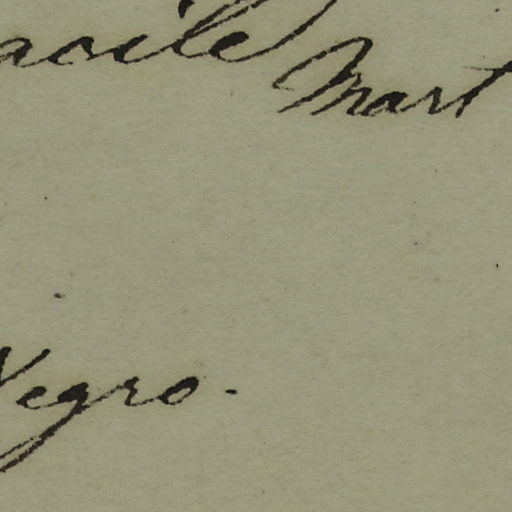 acile Mart
Negro.